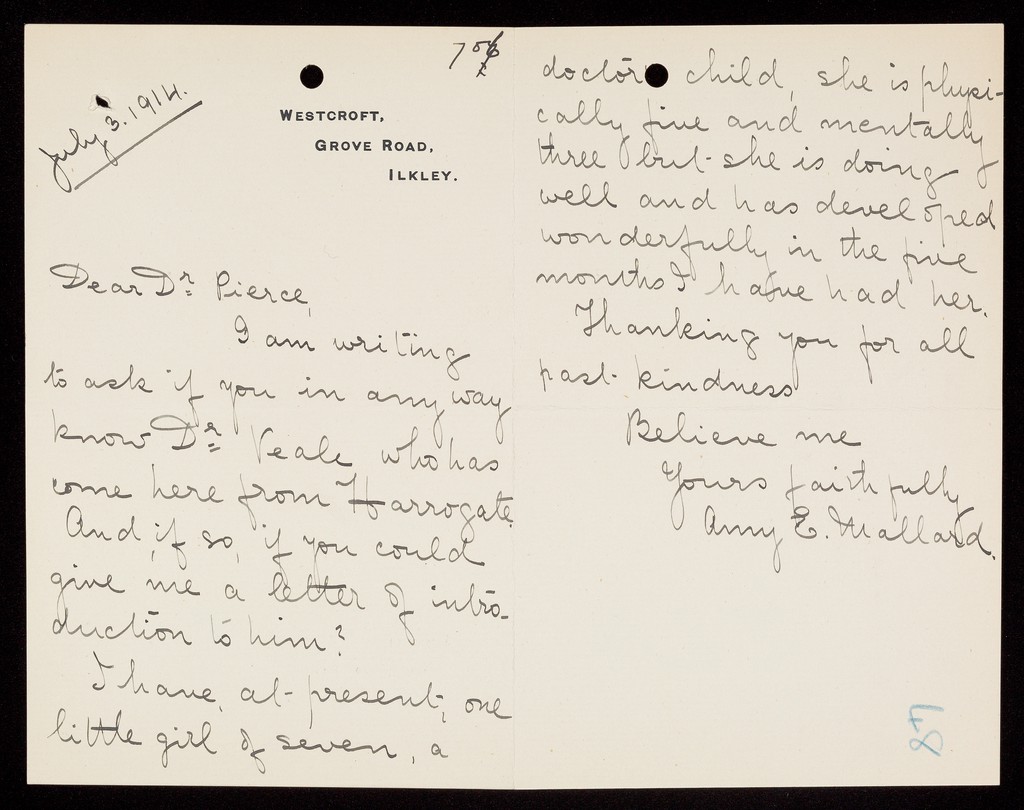 July 3. 1914.
WESTCROFT,
GROVE ROAD,
ILKLEY.
Dear Dr. Pierce,
I am writing
to ask if you in any way
know Dr. Veale who has
come here from Harrogate.
And, if so, if you could
give me a letter of intro-
duction to him?
I have, at present, one
little girl of seven, a
doctors child, she is physi-
cally five and mentally
three but she is doing
well and has developed
wonderfully in the five
months I have had her.
Thanking you for all
past kindness
Believe me
Yours faithfully
Amy E. Mallard.